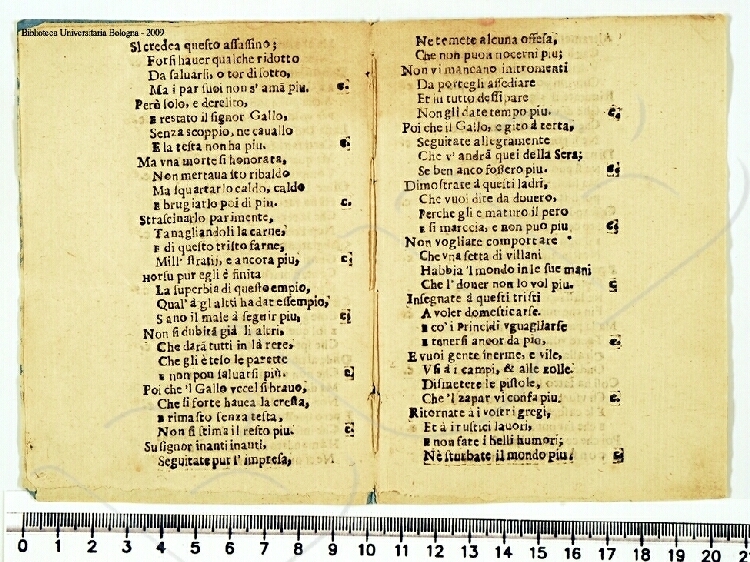 Biblioteca Universitaria Bologna - 2009
Si credea questo assassino;
Forsi hauer qualche ridotto
Da saluarsi, o tor di sotto,
Ma i par suoi non s' amā piu. c.
Però solo, e derelito,
E restato il signor Gallo,
Senza scoppio, ne cauallo
E la testa non ha piu. c.
Ma vna morte si honorata,
Non mertaua sto ribaldo
Ma squartarlo caldo, caldo
E brugiarlo poi di piu. c.
Strascinarlo parimente,
Tanagliandoli la carne,
E di questo tristo farne,
Mill' stratij, e ancora piu, c.
Horsu pur egli è finita
La superbia di questo empio,
Qual' à gl altri ha dat essempio,
S ano il male à seguir piu, c.
Non si dubita già li altri,
Che darà tutti in la rete,
Che gli è teso le parette
E non pon saluarsi più. c.
Poi che 'l Gallo vccel si brauo,
Che si forte hauea la cresta,
E rimasto senza testa,
Non si stima il resto piu. c.
Su signor inanti inanti,
Seguitate pur l' impresa,
Ne temete alcuna offesa,
Che non puon nocerui piu;
Non vi mancano instromenti
Da potergli assediare
Et in tutto dessipare
Non gli date tempo piu. c.
Poi che il Gallo, e gito à terra,
Seguitate allegramente
Che v' andrà quei della Serra;
Se ben anco fossero piu. c.
Dimostrate à questi ladri,
Che vuoi dite da douero,
Perche gli e maturo il pero
E si marccia, e non puo piu c.
Non vogliate comportare
Che vna setta di villani
Habbia 'l mondo in le sue mani
Che l' douer non lo vol piu. c
Insegnate à questi tristi
A voler domesticarse.
E co' i Principi vguagliarse
E tenersi ancor da piu. c.
E vuoi gente inerme, e vile,
Vsi à i campi, & alle zolle.
Dismetere le pistole,
Che 'l zapar vi confa piu, c.
Ritornate à i vostri gregi,
Et à i rustici lauori,
E non fate i belli humori;
Nè sturbate il mondo piu. c.
0 1 2 3 4 5 6 7 8 9 10 11 12 13 14 15 16 17 18 19 20 21